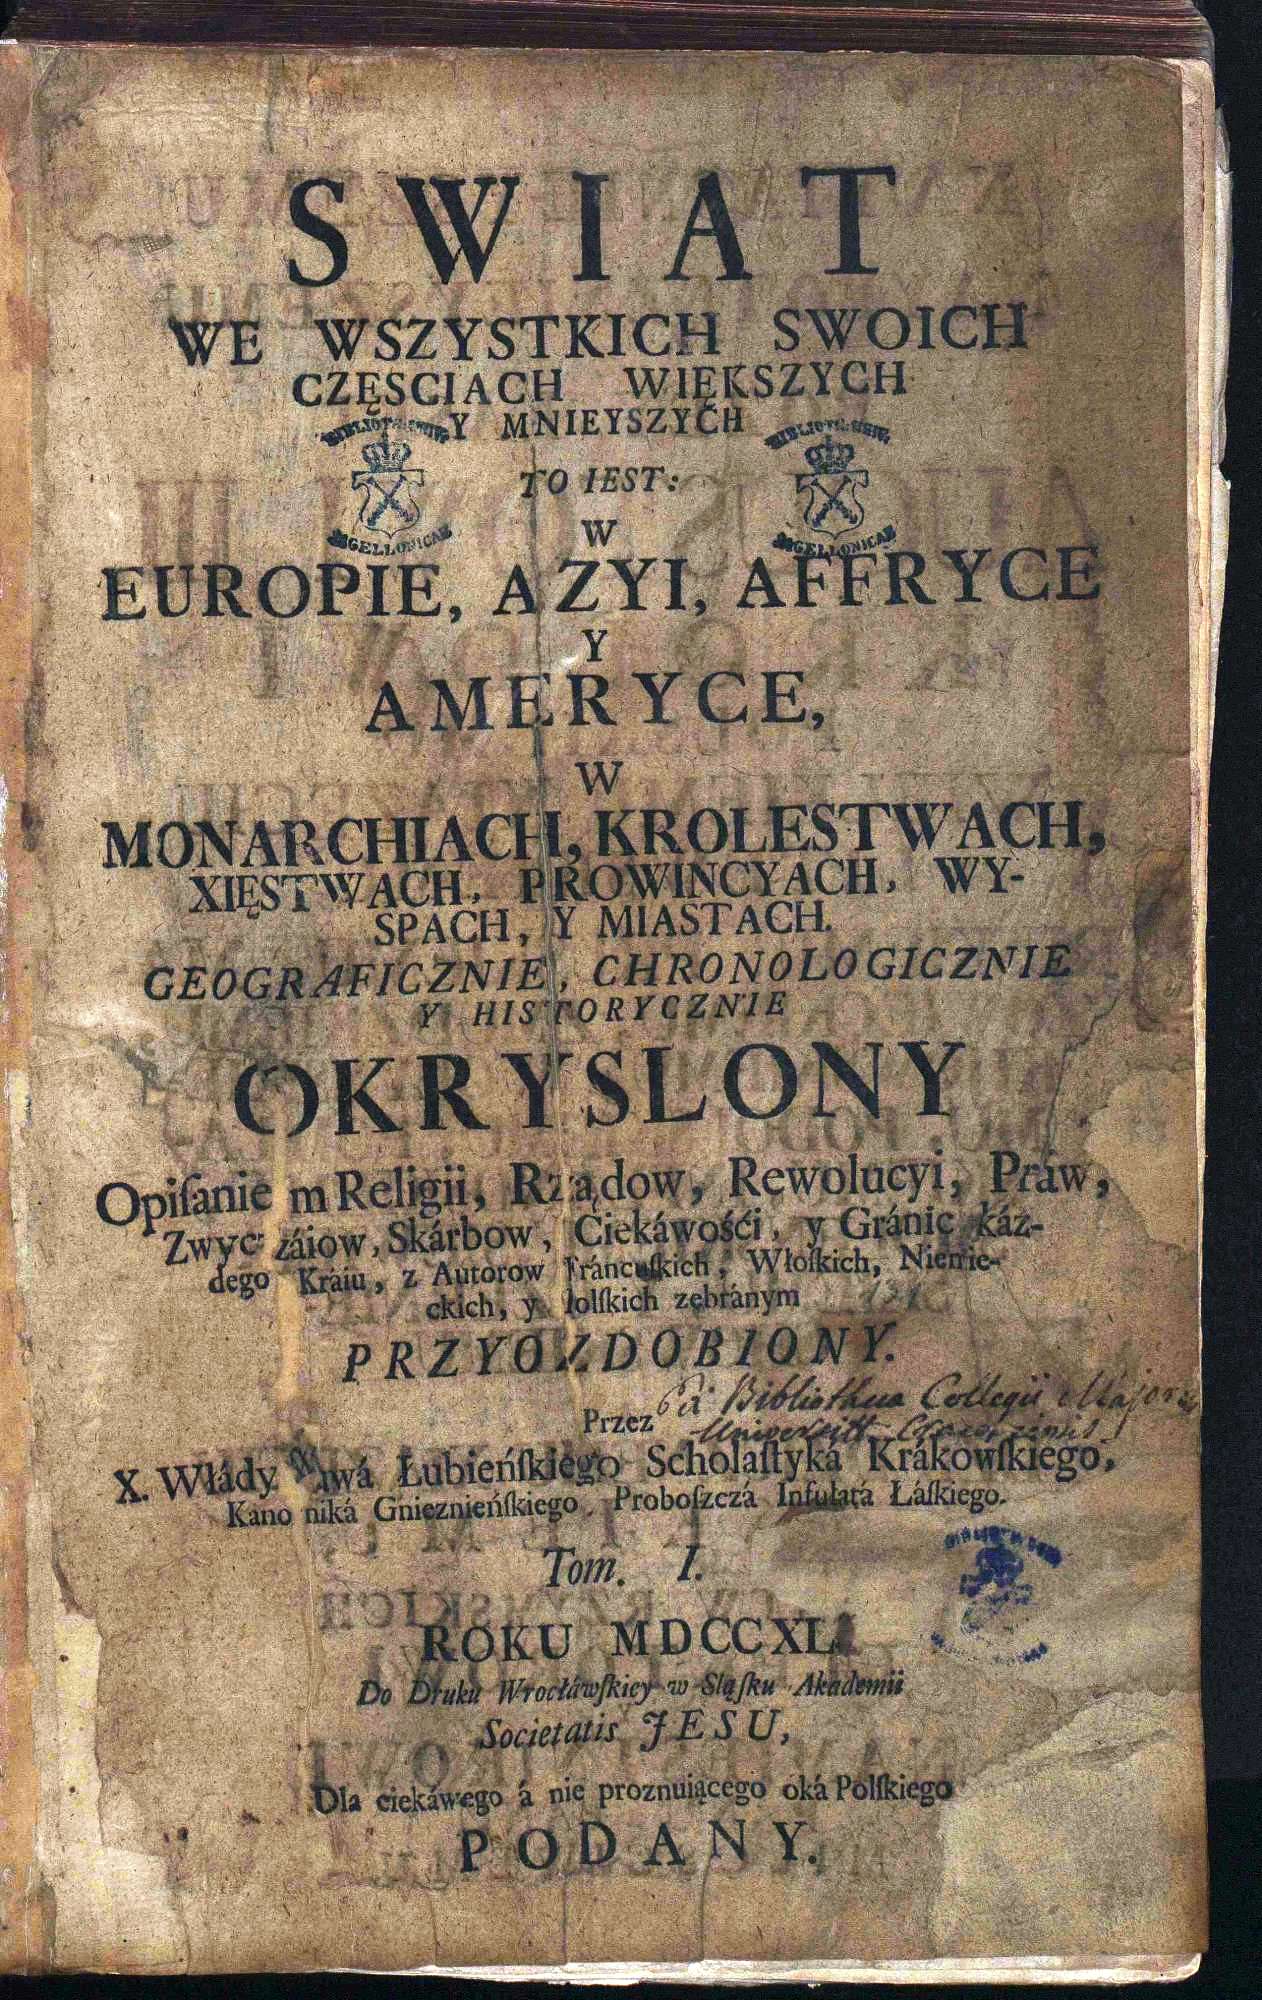 SWIAT
WE WSZYSTKICH SWOICH
CZĘSCIACH WIĘKSZYCH
Y MNIEYSZYCH
TO IEST:
W
EUROPIE, AZYI, AFFRYCE
Y
AMERYCE,
W
MONARCHIACH, KROLESTWACH,
XIĘSTWACH, PROWINCYACH, WY-
SPACH, Y MIASTACH.
GEOGRAFICZNIE, CHRONOLOGICZNIE
Y HISTORYCZNIE
OKRYSLONY
Opiſaniem Religii, Rządow, Rewolucyi, Práw,
Zwyczáiow, Skárbow, Ciekáwośći, y Gránic káż-
dego Kráiu, z Autorow Fráncuſkich, Włoſkich, Niemie-
ckich, y Polſkich zebránym
PRZYOZDOBIONY.
Przez
Bibliotheca Collegii Majoris
X. Włády wá Łubieńſkiego Scholaſtyká Krákowſkiego,
Kanoniká Gnieznieńſkiego, Proboſzczá Infułatá Łáſkiego.
Tom. I.
ROKU MDCCXL
Do Druku Wrocłáwſkiey w Sląſku Akademii
Societatis JESU,
Dla ciekáwego á nie proznuiącego oká Polſkiego
PODANY.